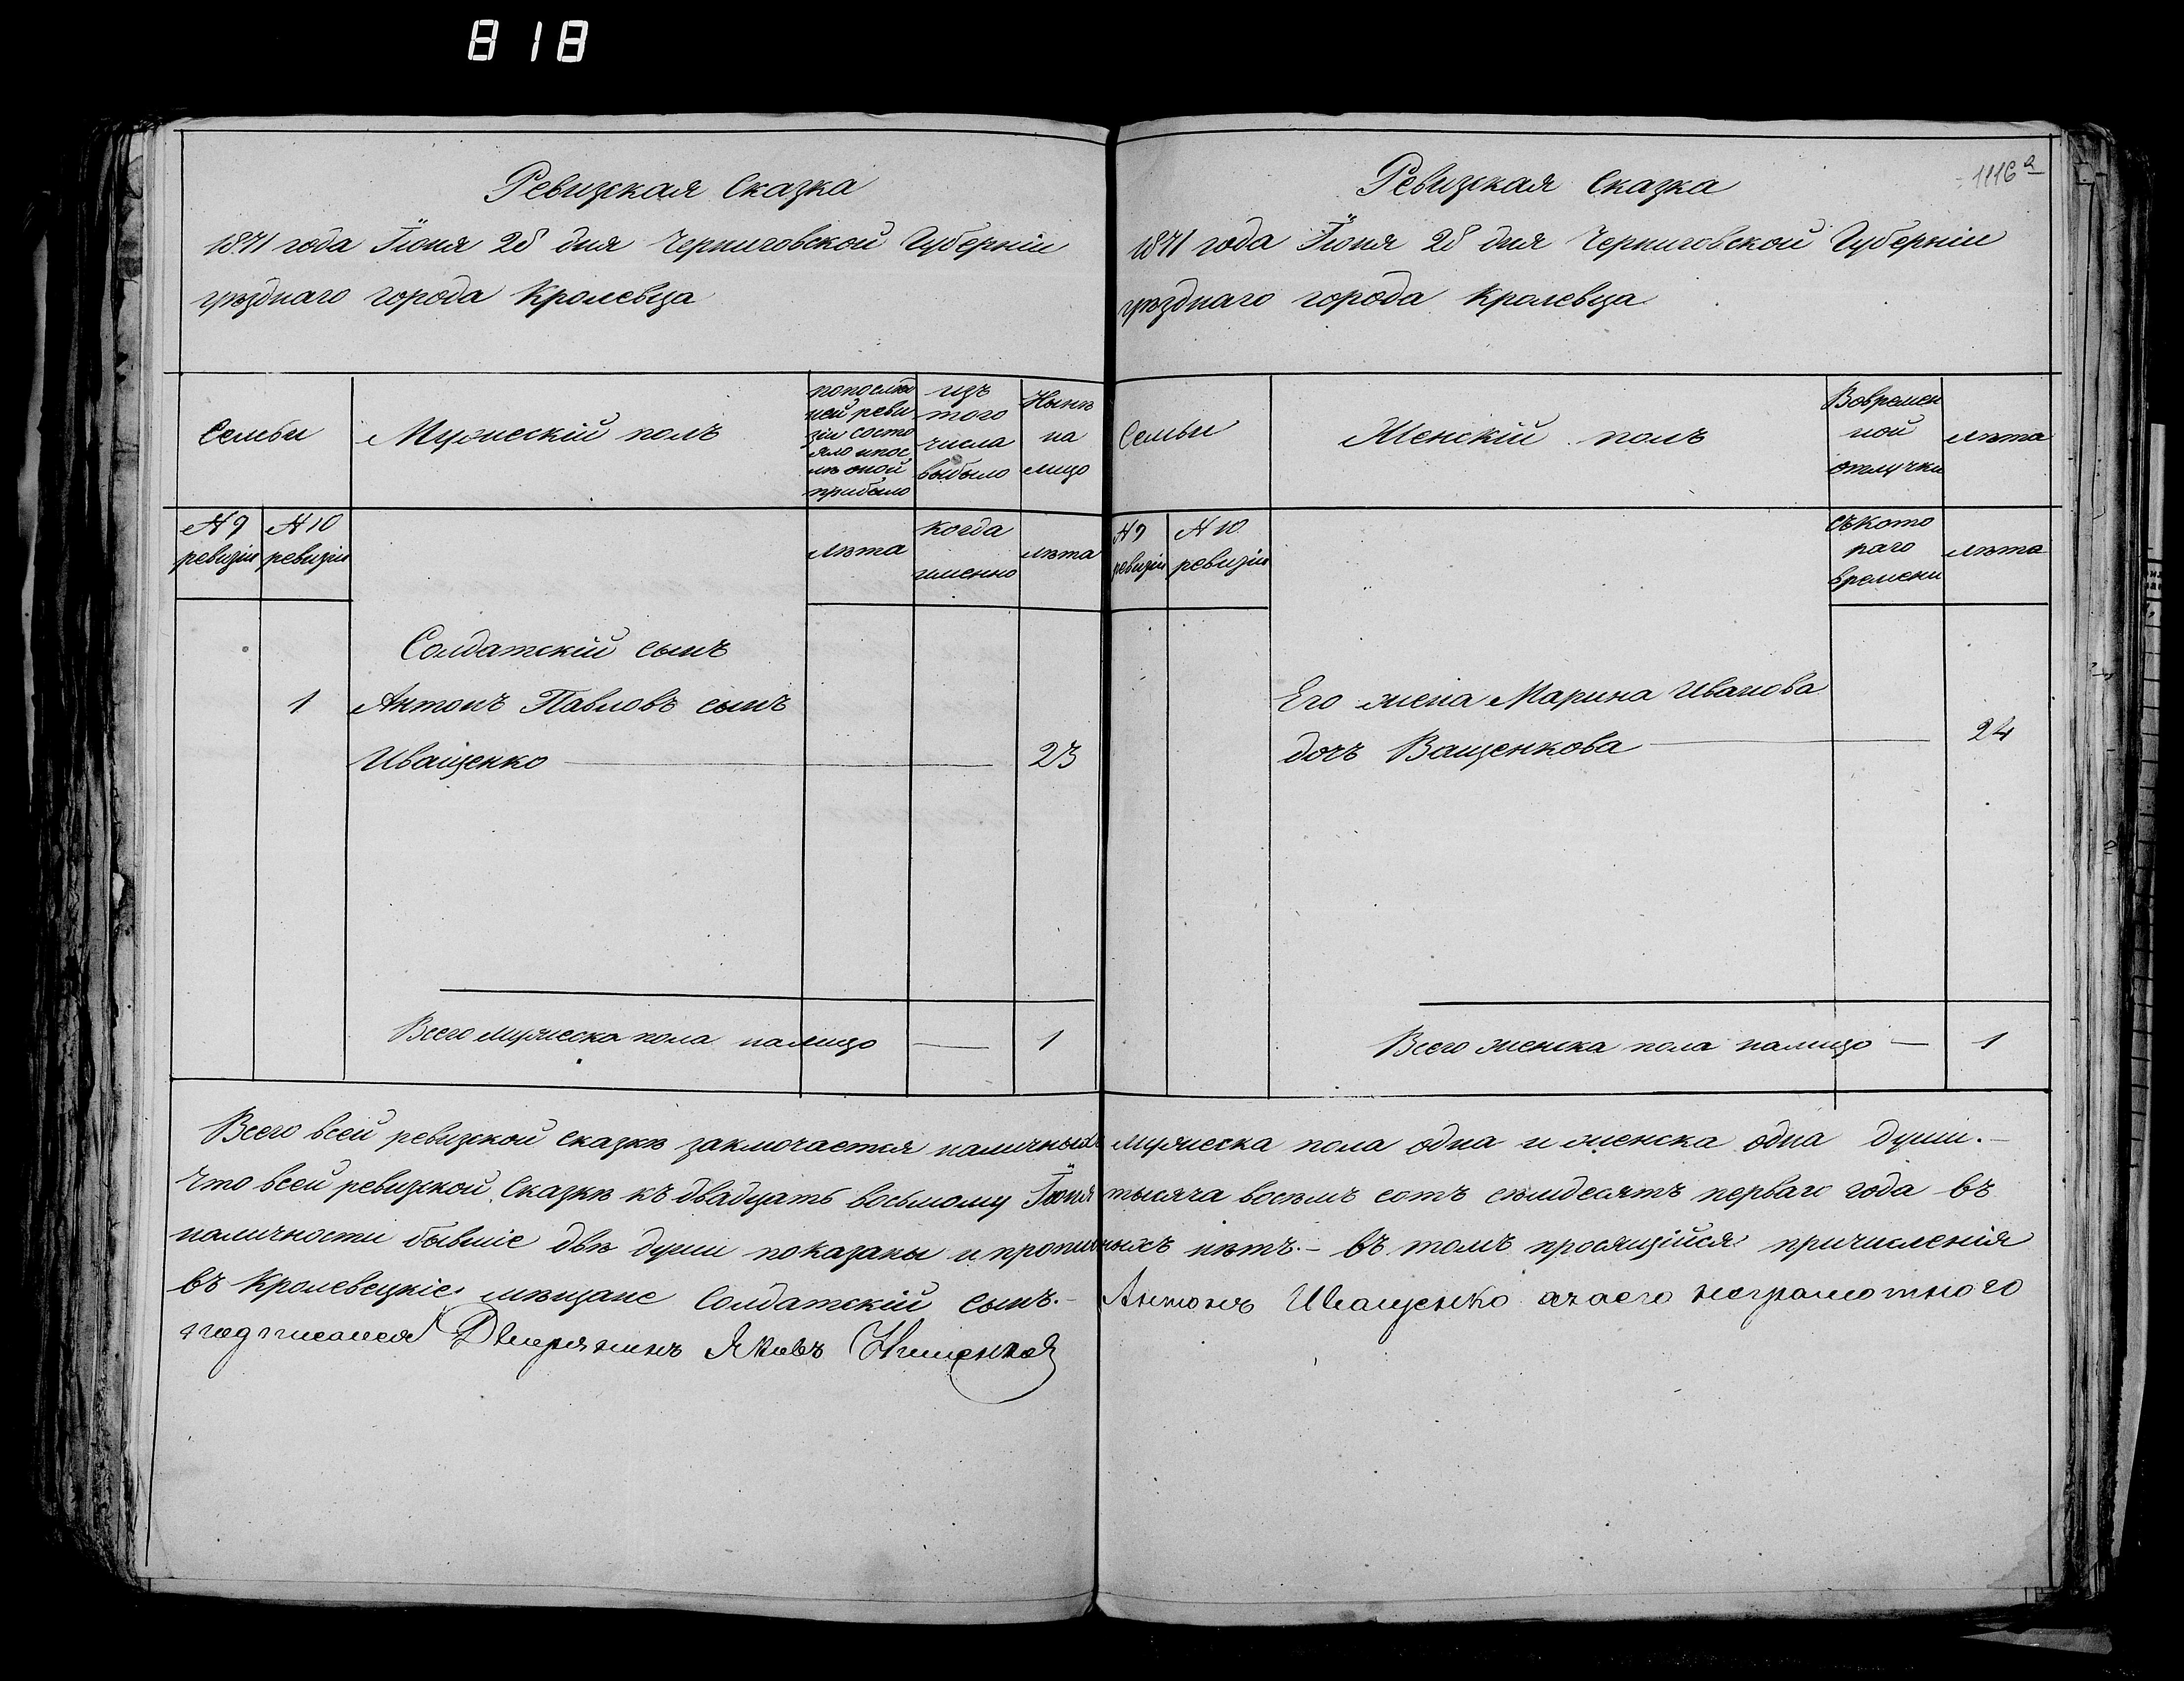 818
Ревизская Сказка
1871 года Іюня 28 дня Черниговской Губерніи
уѣзднаго города Кролевца
Семьи
Мужескій полъ
попослѣд
ней реви
зіи состо
яло ипос
лѣ оной
прибыло
изъ
того
числа
выбыло
Нынѣ
на
лицо
№ 9
ревизіи
№ 10
ревизіи
лѣта
когда
именно
лѣта
Солдатскій сынъ
1 Антонъ Павловъ сынъ
Иващенко 23
Всего мужеска пола налицо 1
1116а
Ревизская Сказка
1871 года Іюня 28 дня Черниговской Губерніи
уѣзднаго города Кролевца
Семьи
Женскій полъ
Вовремен
ной
отлучки
лѣта
№ 9
ревизіи
№ 10
ревизіи
съкото
раго
времени
лѣта
Его жена Марина Иванова
дочь Ващенкова 24
Всего женска пола налицо 1
Всего всей ревизкой сказкѣ заключается наличныхъ мужеска пола одна и женска одна души.-
Что всей ревизкой Сказкѣ къ двадцать восьмому Іюня тысяча восемь сотъ семдесятъ перваго года въ
наличности бывшіе двѣ души показаны и прописныхъ нѣтъ.- въ томъ просящійся причисленія
въ Кролевецкіе мѣщане Солдатскій сынъ.- Антонъ Иващенко азаего неграмотного
подписался Дворянинъ Яковъ